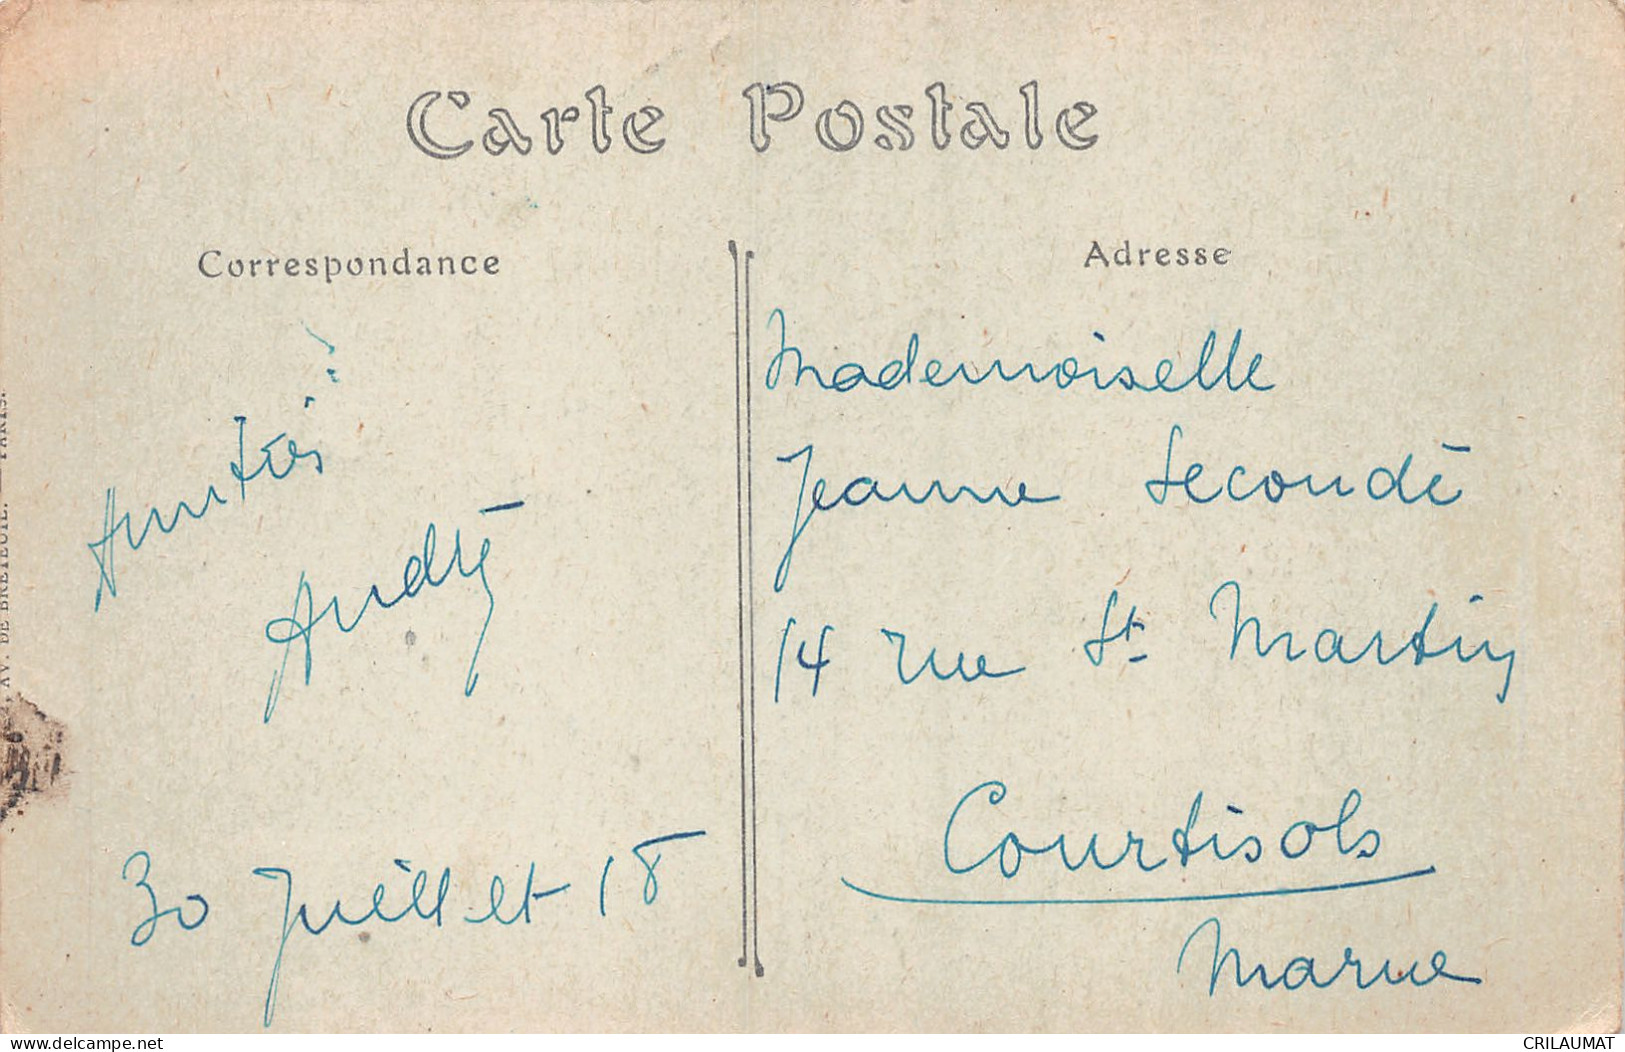 Carte Postale
Correspondance
Amitiés!
André
30 Juillet 18
Adresse
Mademoiselle
Jeanne Secondé
14 rue St Martin
Courtisols
Marne
AV. DE BRETEUIL. — PARIS.
www.delcampe.net
CRILAUMAT